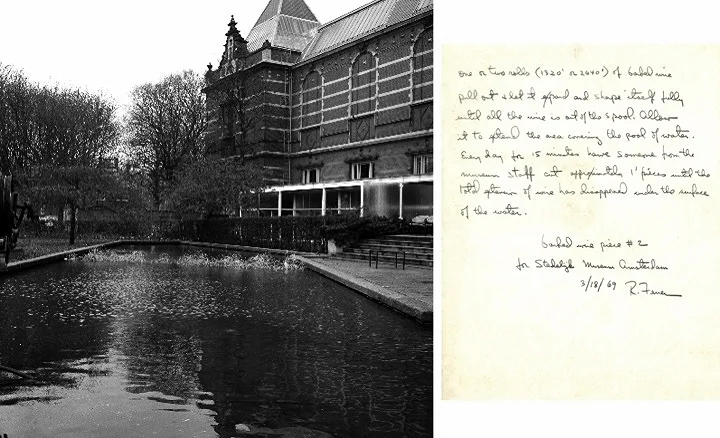 one or two rolls (1320' or 2640') of barbed wire
pull out & let it expand and shape itself fully
until all the wire is out of the spool. Allow
it to extend the area covering the pool of water.
Every day for 15 minutes have someone from the
museum staff cut approximately 1' pieces until the
total of wire has disappeared under the surface
of the water.
barbed wire piece #2
for Stedelijk Museum Amsterdam
3/18/69 R. Ferrer